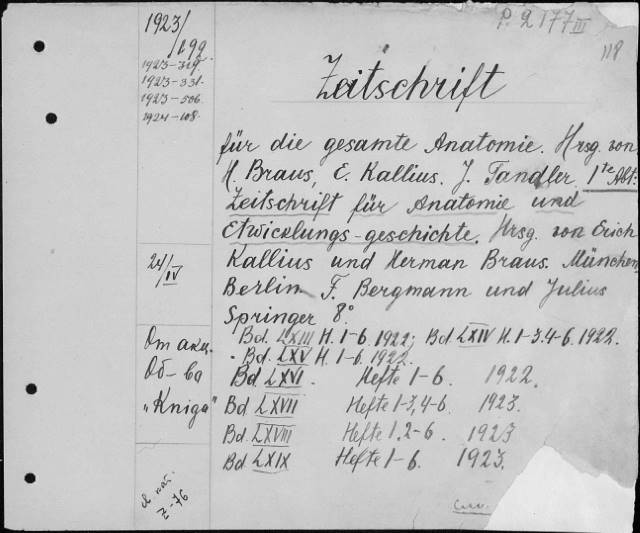 P. 2177 III
118
1923/199
1923-329.
1923-331.
1923-506.
1924-108.
Zeitschrift
für die gesamte Anatomie. Hrsg. von
H. Braus, E. Kallius. J. Tandler. 1te Abt:
Zeitschrift für Anatomie und
Etwicklungs-geschichte. Hrsg. von Erich
24/IV
Kallius und Herman Braus. München,
Berlin. F. Bergmann und Julius
Springer 8°.
От акц.
Об-ва
„Книга"
Bd. LXIII H. 1-6. 1922; Bd. LXIV H. 1-3.4-6. 1922.
Bd. LXV H. 1-6. 1922.
Bd LXVI. Hefte 1-6. 1922.
Bd LXVII Hefte 1-3,4-6. 1923.
Bd LXVIII Hefte 1.2-6. 1923
Bd LXIX Hefte 1-6. 1923.
Z-76